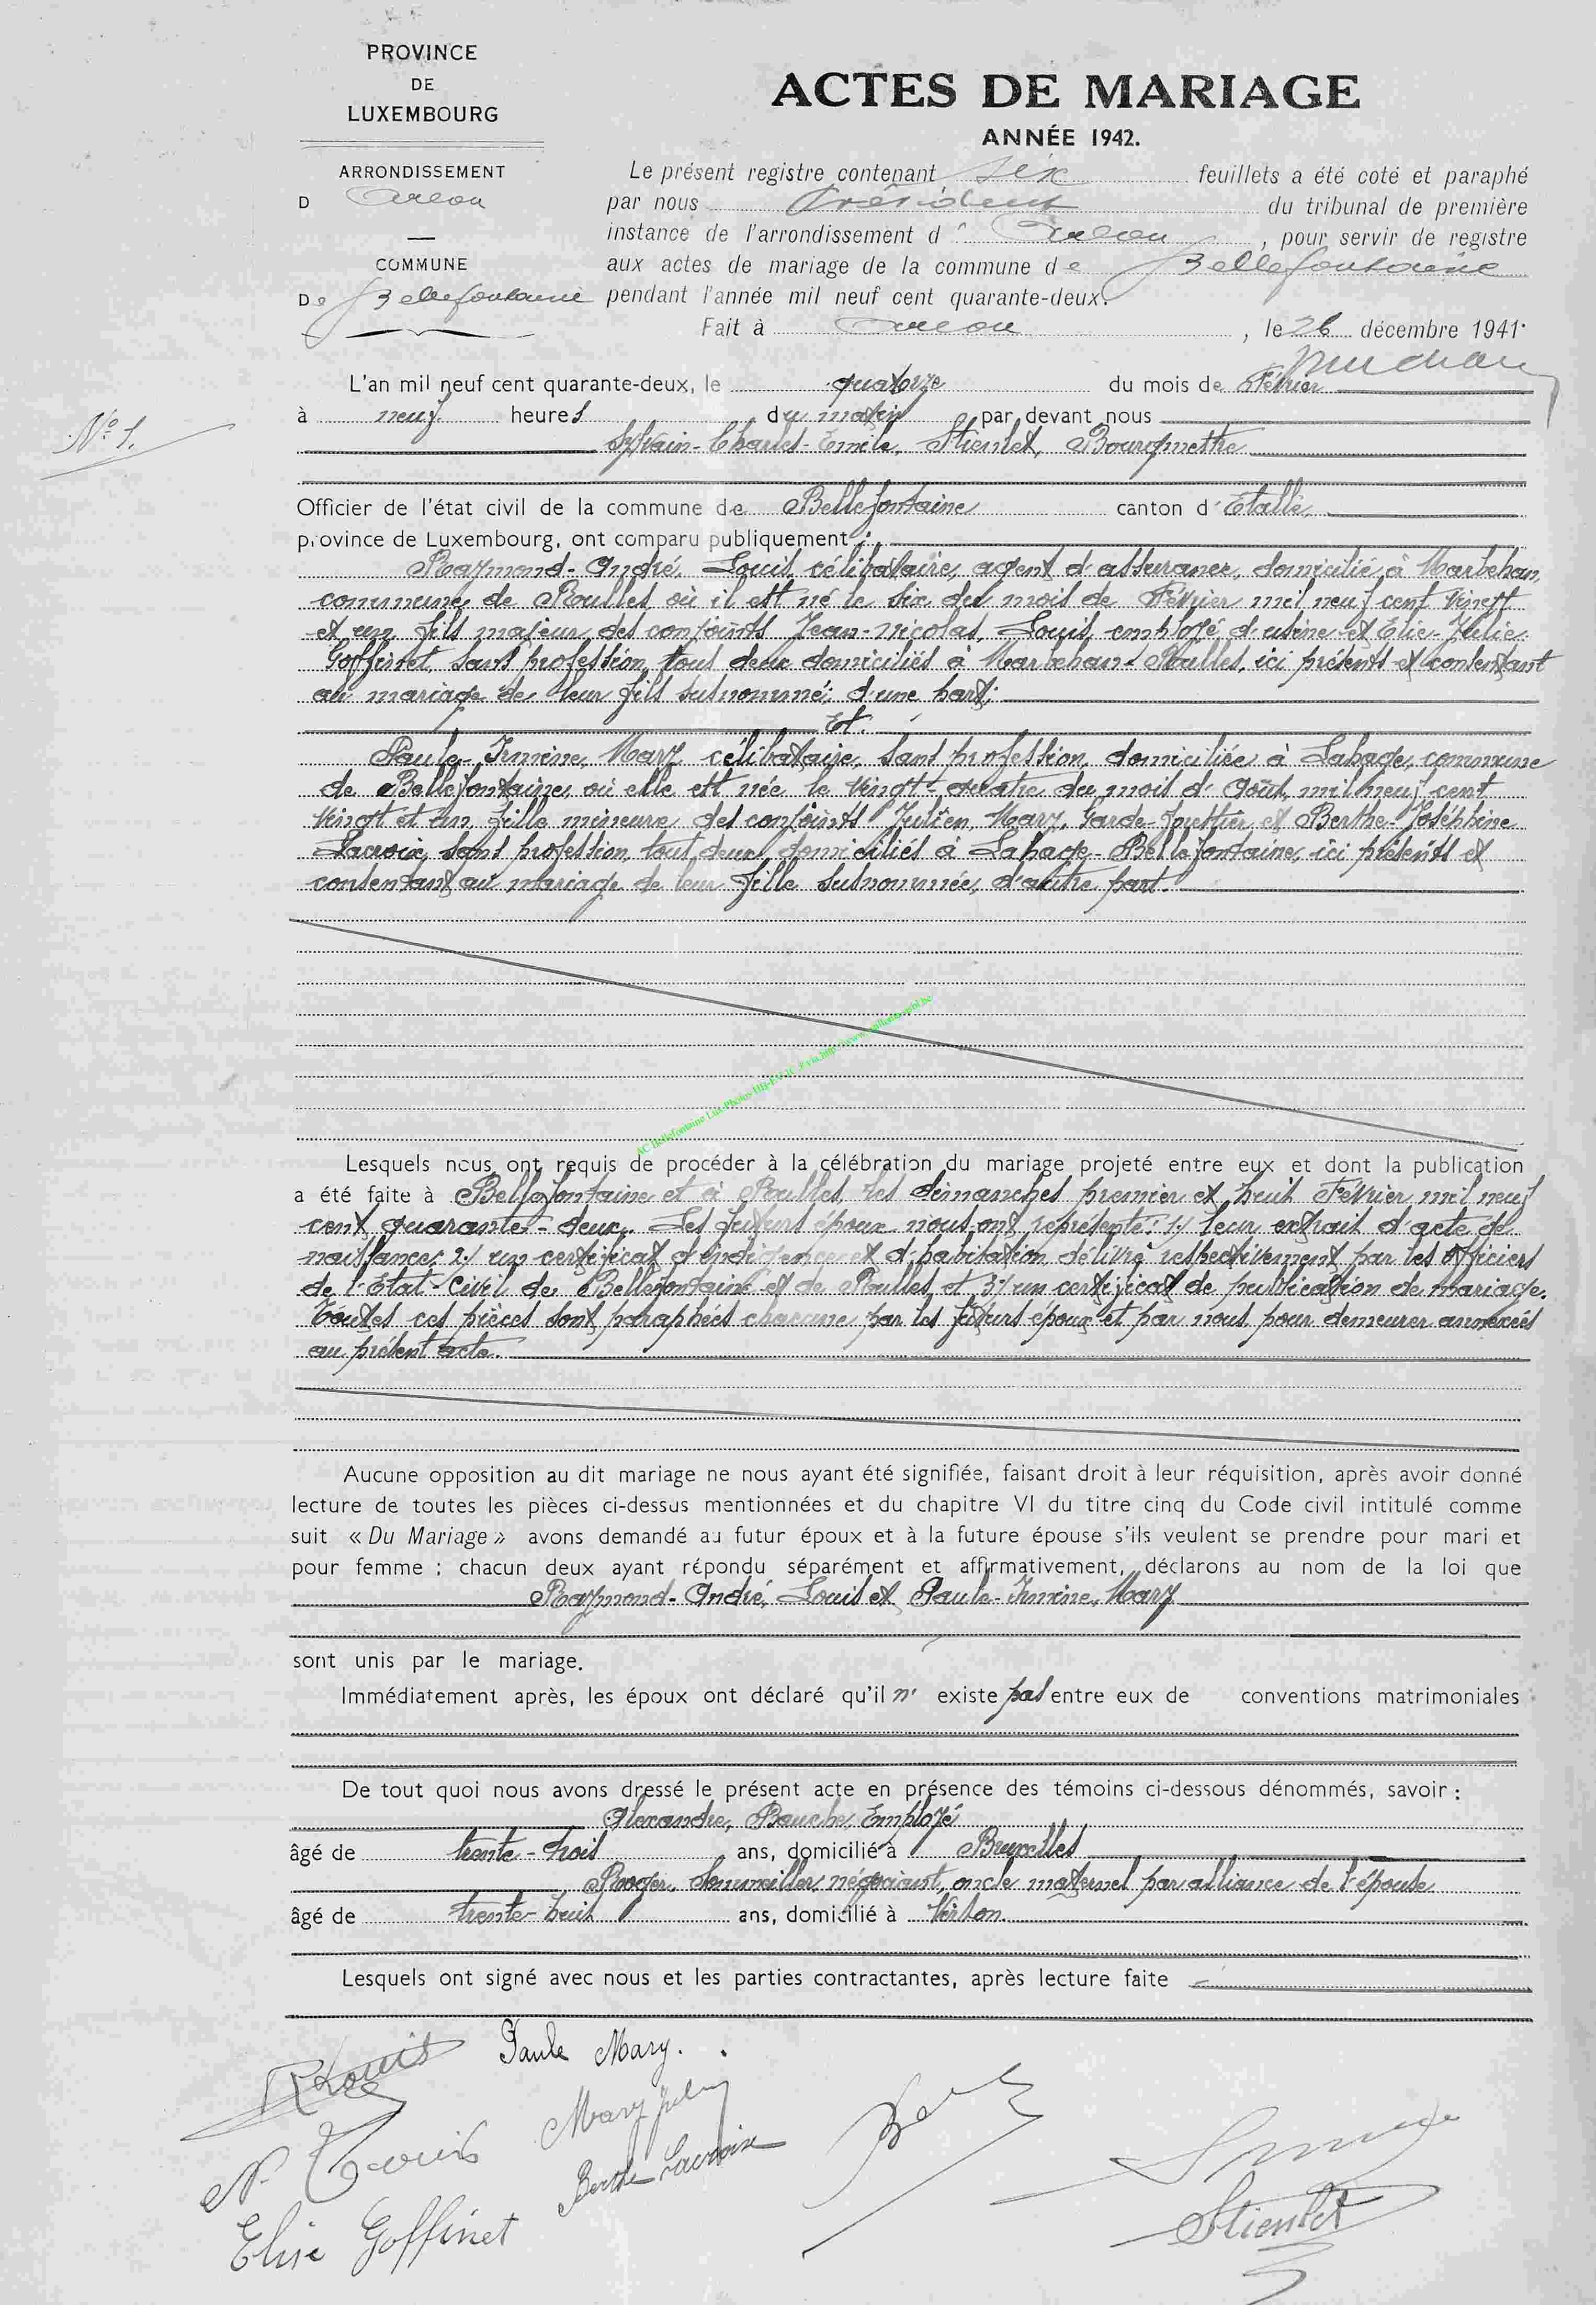 PROVINCE
DE
LUXEMBOURG
ARRONDISSEMENT
D Arlon
COMMUNE
De Bellefontaine
ACTES DE MARIAGE
ANNÉE 1942.
Le présent registre contenant six feuillets a été coté et paraphé
par nous Président du tribunal de première
instance de l'arrondissement d' Arlon, pour servir de registre
aux actes de mariage de la commune de Bellefontaine
pendant l'année mil neuf cent quarante-deux.
Fait à Arlon, le 26 décembre 1941.
N° 1.
L'an mil neuf cent quarante-deux, le quatorze du mois de Février
à neuf heures du matin par devant nous
Sylvain-Charles-Emile, Stienlet, Bourgmestre
Officier de l'état civil de la commune de Bellefontaine canton d'Etalle,
province de Luxembourg, ont comparu publiquement :
Raymond-André, Louis, célibataire, agent d'assurance, domicilié à Marbehan,
commune de Rulles, où il est né le six du mois de Février mil neuf cent vingt
et un, fils majeur des conjoints Jean-Nicolas, Louis, employé d'usine et Elie-Julie
Goffinet, sans profession, tous deux domiciliés à Marbehan-Rulles, ici présents et consentant
au mariage de leur fils susnommé; d'une part;
Et.
Paule-Irmine, Mary célibataire, sans profession, domiciliée à Lahage, commune
de Bellefontaine, où elle est née le vingt-quatre du mois d'Août, mil neuf cent
vingt et un, fille mineure des conjoints Julien, Mary, Garde-forestier et Berthe-Joséphine
Lacroix, sans profession, tout deux domiciliés à Lahage-Bellefontaine, ici présents et
consentant au mariage de leur fille susnommée, d'autre part.
AC Bellefontaine Lux Photos
Lesquels nous ont requis de procéder à la célébration du mariage projeté entre eux et dont la publication
a été faite à Bellefontaine et à Rulles, les dimanches premier et huit Février mil neuf
cent quarante-deux. Les futurs époux nous ont représenté: 1) leur extrait d'acte de
naissance, 2) un certificat d'indigence et d'habitation délivré respectivement par les Officiers
de l'Etat-Civil de Bellefontaine et de Rulles, et 3) un certificat de publication de mariage.
Toutes ces pièces sont paraphées chacune par les futurs époux et par nous pour demeurer annexées
au présent acte.
Aucune opposition au dit mariage ne nous ayant été signifiée, faisant droit à leur réquisition, après avoir donné
lecture de toutes les pièces ci-dessus mentionnées et du chapitre VI du titre cinq du Code civil intitulé comme
suit « Du Mariage » avons demandé au futur époux et à la future épouse s'ils veulent se prendre pour mari et
pour femme ; chacun deux ayant répondu séparément et affirmativement, déclarons au nom de la loi que
Raymond-André, Louis et Paule-Irmine, Mary
sont unis par le mariage.
Immédiatement après, les époux ont déclaré qu'il n' existe pas entre eux de conventions matrimoniales
De tout quoi nous avons dressé le présent acte en présence des témoins ci-dessous dénommés, savoir :
Alexandre, Bauche, Employé
âgé de trente-trois ans, domicilié à Bruxelles
Roger, Sommeiller, négociant, oncle maternel par alliance de l'épouse
âgé de trente-huit ans, domicilié à Virton.
Lesquels ont signé avec nous et les parties contractantes, après lecture faite
RLouis Paule Mary.
N. Louis Mary Julien
Elise Goffinet Berthe Lacroix
Stienlet